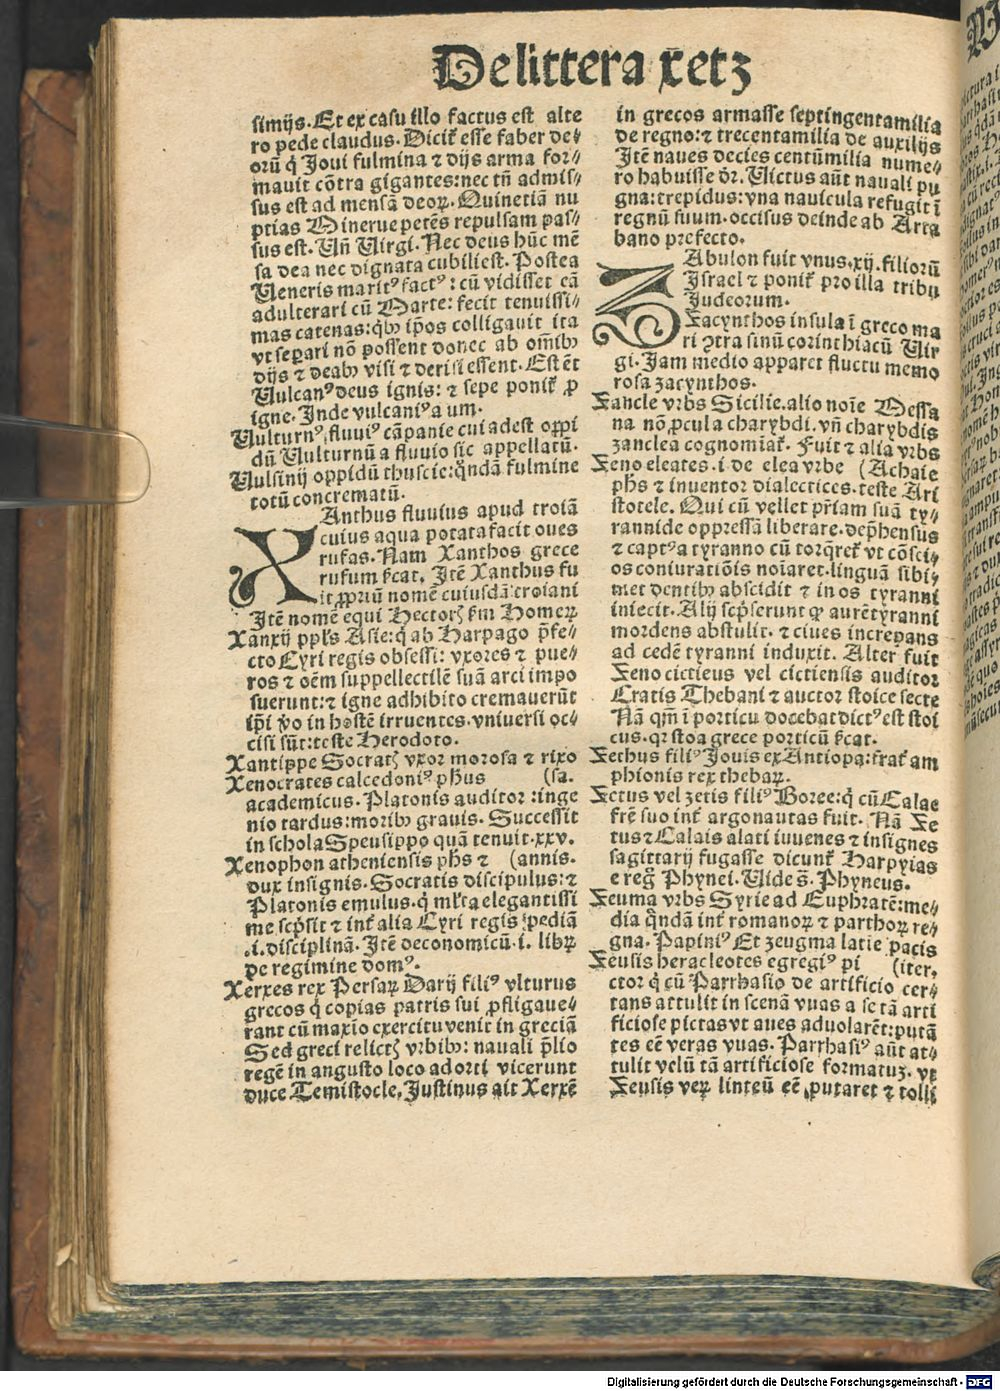 De littera x et z
simijs. Et ex casu illo factus est alte
ro pede claudus. Dicit̃ esse faber de⸗
orũ q̃ Joui fulmina ⁊ dijs arma for⸗
mauit cõtra gigantes: nec tñ admis⸗
sus est ad mensã deoꝝ. Quinetiã nu
ptias Minerue petẽs repulsam pas⸗
sus est. Vñ Virgi. Nec deus hũc mẽ
sa dea nec dignata cubili est. Postea
Veneris maritꝰ factꝰ: cũ vidisset eã
adulterari cũ Marte: fecit tenuissi⸗
mas catenas: qb̃ꝫ ip̃os colligauit ita
vt separi nõ possent donec ab om̃ibꝫ
dijs ⁊ deabꝫ visi ⁊ derisi essent. Est ẽt
Vulcanꝰ deus ignis: ⁊ sepe ponit̃ ꝓ
igne. Inde vulcaniꝰ a um.
Vulturnꝰ fluuiꝰ cãpanie cui adest oppi
dũ Vulturnũ a fluuio sic appellatũ.
Vulsinij oppidũ thuscie: q̃ndã fulmine
totũ concrematũ.
XAnthus fluuius apud troiã
cuius aqua potata facit oues
rufas. Nam Xanthos grece
rufum s̃cat. Itẽ Xanthus fu
it ꝓpriũ nomẽ cuiusdã troiani
Itẽ nomẽ equi Hectorꝭ s̃m Homerꝝ
Xanxij ppl̃s Asie: q̃ ab Harpago p̃fe⸗
cto Cyri regis obsessi: vxores ⁊ pue⸗
ros ⁊ oẽm suppellectilẽ suã arci impo
suerunt: ⁊ igne adhibito cremauerũt
ip̃i ṽo in hostẽ irruentes. vniuersi oc⸗
cisi sũt: teste Herodoto.
Xantippe Socratꝭ vxor morosa ⁊ rixo
Xenocrates calcedoniꝰ ph̃us (sa.
academicus. Platonis auditor: inge
nio tardus: moribꝫ grauis. Successit
in schola Speusippo quã tenuit. xxv.
Xenophon atheniensis ph̃s ⁊ (annis.
dux insignis. Socratis discipulus: ⁊
Platonis emulus. q̃ ml̃ta elegantissi
me scp̃sit ⁊ int̃ alia Cyri regis pediã
.i. disciplinã. Itẽ oeconomicũ .i. librꝝ
de regimine domꝰ.
Xerxes rex Persaꝝ Darij filiꝰ vlturus
grecos q̃ copias patris sui ꝓfligaue⸗
rant cũ maxĩo exercitu venit in greciã
Sed greci relictꝭ vrbibꝫ: nauali p̃lio
regẽ in angusto loco adorti vicerunt
duce Temistocle. Justinus ait Xerxẽ
in grecos armasse septingentamilia
de regno: ⁊ trecentamilia de auxilijs
Itẽ naues decies centũmilia nume⸗
ro habuisse dr̃. Victus aũt nauali pu
gna: trepidus: vna nauicula refugit ĩ
regnũ suum. occisus deinde ab Arta
bano prefecto.
ZAbulon fuit vnus .xij. filiorũ
Israel ⁊ ponit̃ pro illa tribu
Judeorum.
Zacynthos insula ĩ greco ma
ri ꝯtra sinũ corinthiacũ Vir
gi. Jam medio apparet fluctu memo
rosa zacynthos.
Zancle vrbs Sicilie. alio noĩe Messa
na nõ ꝓcula charybdi. vñ charybdis
zanclea cognomiat̃. Fuit ⁊ alia vrbs
Zeno eleates .i. de elea vrbe (Achaie
ph̃s ⁊ inuentor dialectices. teste Ari
stotele. Qui cũ vellet pr̃iam suã ty⸗
rannide oppressã liberare. dep̃hensus
⁊ captꝰ a tyranno cũ torq̃ret̃ vt cõsci⸗
os coniuratiõis noĩaret. linguã sibi⸗
met dentibꝫ abscidit ⁊ in os tyranni
iniecit. Alij scp̃serunt ꝙ aurẽ tyranni
mordens abstulit. ⁊ ciues increpans
ad cedẽ tyranni induxit. Alter fuit
Zeno cicticus vel cictiensis auditor
Cratis Thebani ⁊ auctor stoice secte
Nã qm̃ ĩ porticu docebat dictꝰ est stoi
cus. qr stoa grece porticũ s̃cat.
Zethus filiꝰ Jouis ex Antiopa: frat̃ am
phionis rex thebaꝝ.
Zetus vel zetis filiꝰ Boree: q̃ cũ Calae
frẽ suo int̃ argonautas fuit. Nã Ze
tus ⁊ Calais alati iuuenes ⁊ insignes
sagittarij fugasse dicunt̃ Harpyias
e reg̃ Phynei. Vide s̃. Phyneus.
Zeuma vrbs Syrie ad Euphratẽ: me⸗
dia q̃ndã int̃ romanoꝝ ⁊ parthoꝝ re⸗
gna. Papiniꝰ Et zeugma latie pacis
Zeusis heracleotes egregiꝰ pi (iter.
ctor q̃ cũ Parrhasio de artificio cer⸗
tans attulit in scenã vuas a se tã arti
ficiose pictas vt aues aduolarẽt: putã
tes eẽ veras vuas. Parrhasiꝰ aũt at⸗
tulit velũ tã artificiose formatuꝫ. vt
Zeusis veꝝ linteũ eẽ putaret ⁊ tolli
Digitalisierung gefördert durch die Deutsche Forschungsgemeinschaft - DFG